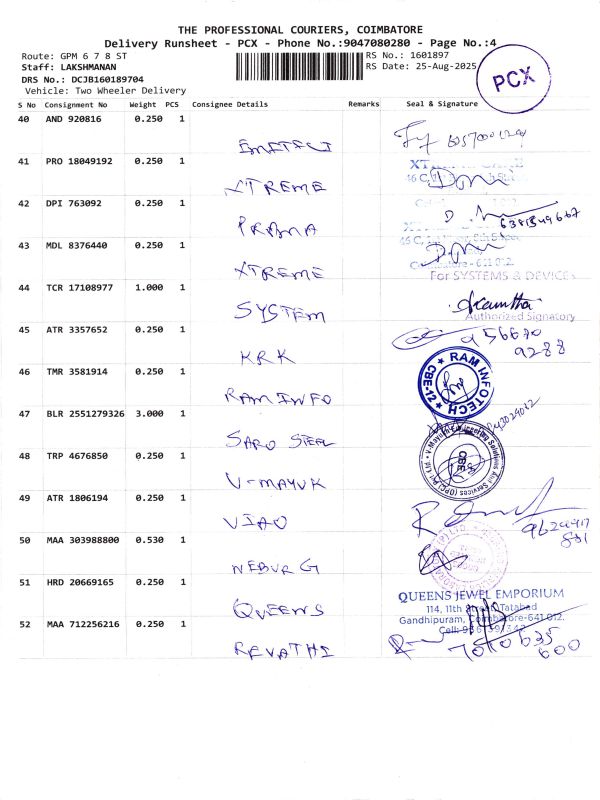 THE PROFESSIONAL COURIERS, COIMBATORE
Delivery Runsheet - PCX - Phone No.:9047080280 - Page No.:4
Route: GPM 6 7 8 ST
RS No.: 1601897
Staff: LAKSHMANAN
RS Date: 25-Aug-2025
DRS No.: DCJB160189704
Vehicle: Two Wheeler Delivery
PCX
S No Consignment No Weight PCS Consignee Details Remarks Seal & Signature
40 AND 920816 0.250 1
41 PRO 18049192 0.250 1
XTREME
42 DPI 763092 0.250 1
PRANA
6381849667
43 MDL 8376440 0.250 1
XTREME
For SYSTEMS & DEVICES
44 TCR 17108977 1.000 1
SYSTEM
Authorized Signatory
45 ATR 3357652 0.250 1
KRK
956670
9288
46 TMR 3581914 0.250 1
RAM INFO
RAM INFOTECH
CBE-12
47 BLR 2551279326 3.000 1
SARO STEEL
48 TRP 4676850 0.250 1
V-MAYUK
49 ATR 1806194 0.250 1
VIAO
50 MAA 303988800 0.530 1
NEBURG
51 HRD 20669165 0.250 1
QUEENS
QUEENS JEWEL EMPORIUM
114, 11th Street, Tatabad
Gandhipuram, Coimbatore-641 012.
52 MAA 712256216 0.250 1
REVATHI